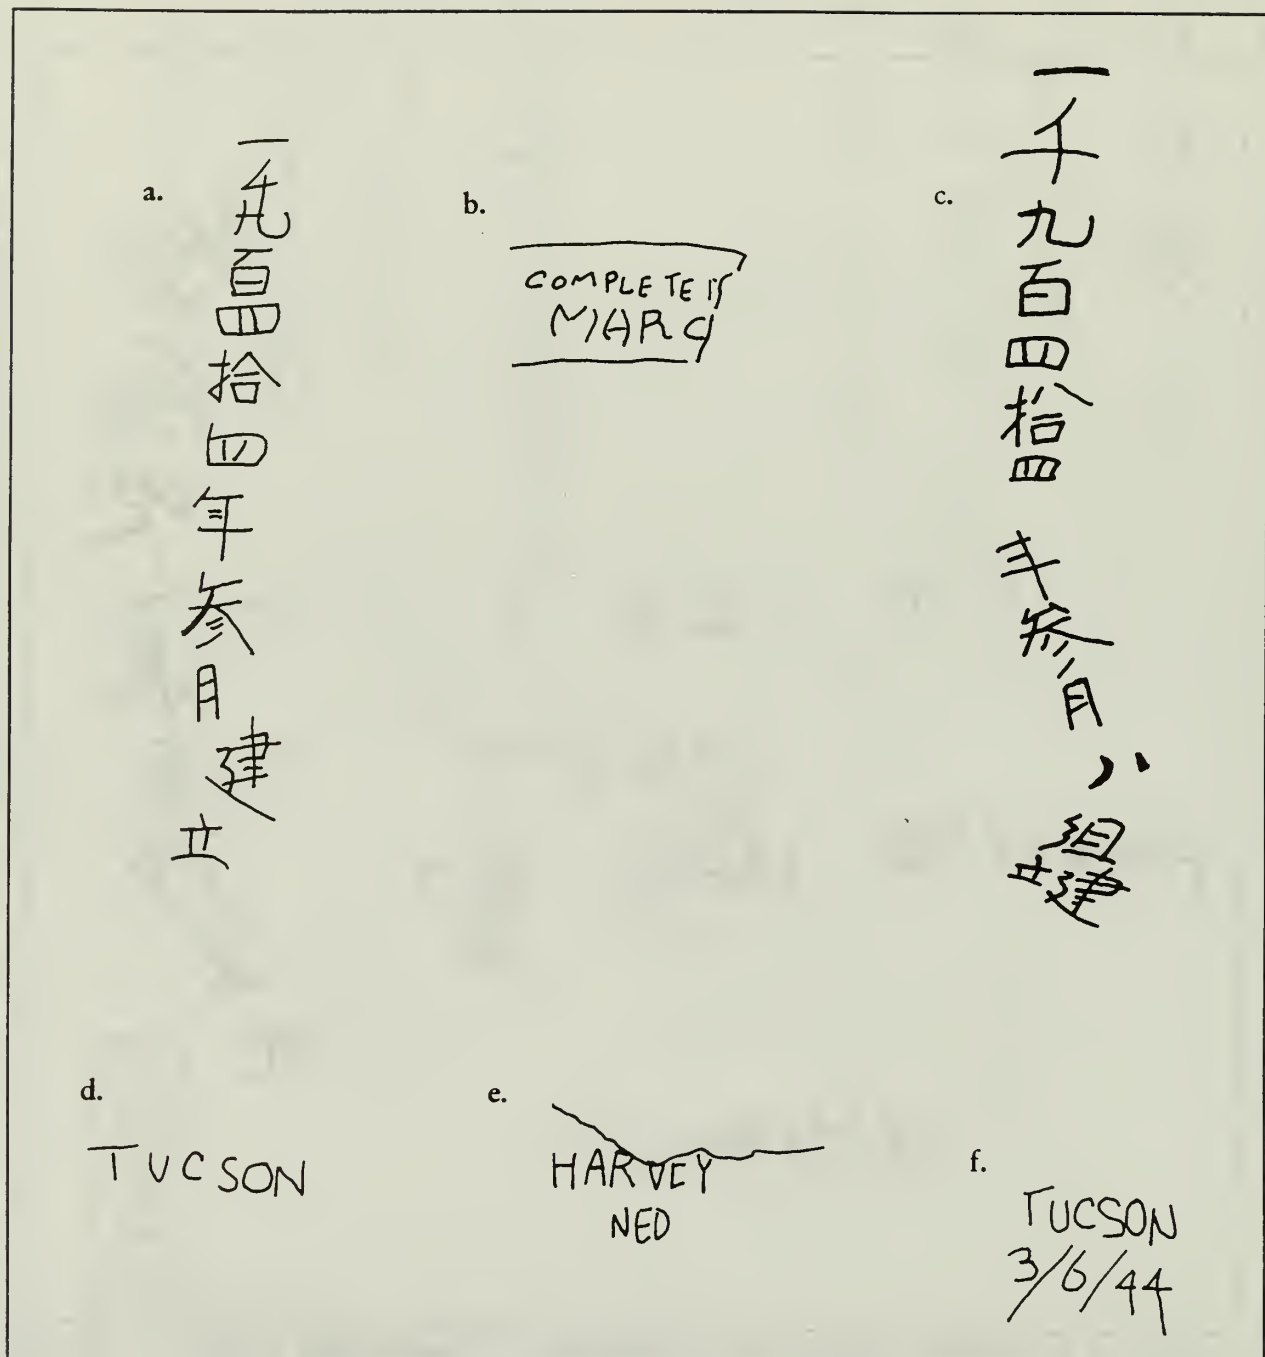 a.
一千九百四拾四年参月建立
b.
COMPLETE
MARC
c.
一千九百四拾四
年参月
八組
建立
d.
TUCSON
e.
HARVEY
NED
f.
TUCSON
3/6/44